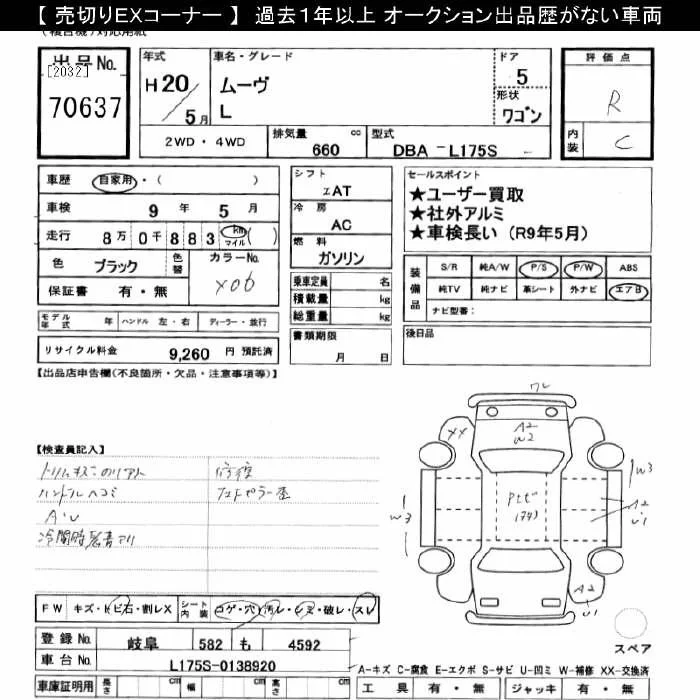 【 売切りEXコーナー 】 過去１年以上 オークション出品歴がない車両
出品No.
[2032]
70637
年式
H 20 / 5 月
車名・グレード
ムーヴ
L
ドア
5
形状
ワゴン
評価点
R
内装
C
2WD ・ 4WD
排気量
660 cc
型式
DBA －L175S －
車歴 自家用・( )
車検 9 年 5 月
走行 8万 0千 8 8 3 km マイル ( )
色 ブラック 色替 カラーNo.
X06
保証書 有・無
シフト
ＩAT
冷房
AC
燃料
ガソリン
乗車定員 名
積載量 kg
総重量 kg
書類期限
月 日
セールスポイント
★ユーザー買取
★社外アルミ
★車検長い（R9年5月）
装備品
S/R 純A/W P/S P/W ABS
純TV 純ナビ 革シート 外ナビ エアB
ナビ型番：
後日品
モデル年式 年 ハンドル 左・右 ディーラー・並行
リサイクル料金 9,260 円 預託済
【出品店申告欄(不良箇所・欠品・注意事項等)】
【検査員記入】
修復
ハンドルヘコミ
冷間時異音アリ
ワレ
XX
A2
W2
W3
W3
A2
U1
A2
U1
FW キズ・ヒビ石・割レX シート内装 コゲ・穴・汚レ・シミ・破レ・スレ
登録No. 岐阜 582 も 4592
車台No. L175S-0138920
スペア
A-キズ C-腐食 E-エクボ S-サビ U-凹ミ W-補修 XX-交換済
車庫証明用 長さ cm 幅 cm 高さ cm
工具 有・無 ジャッキ 有・無